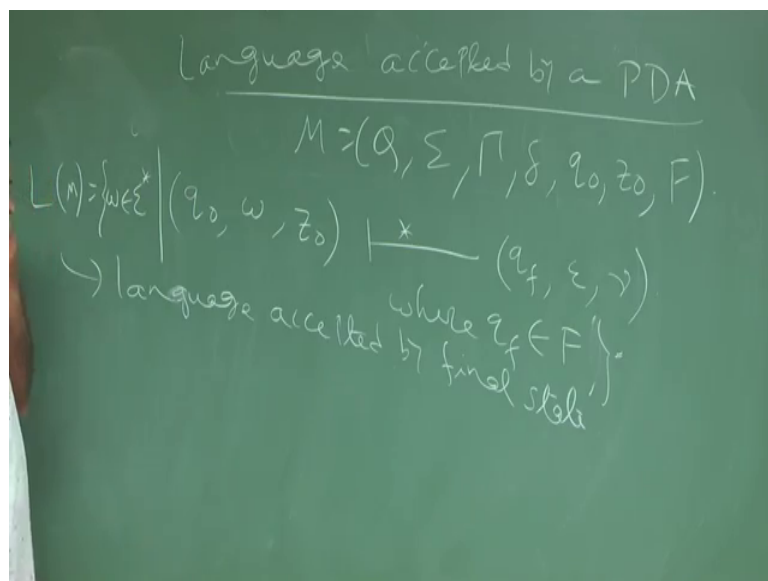 Language accepted by a PDA
M = (Q, Σ, Γ, δ, q₀, z₀, F).
L(M) = {ω ∈ Σ* | (q₀, ω, z₀) ⊢* (q_f, ε, γ)
where q_f ∈ F}.
→ language accepted by final state